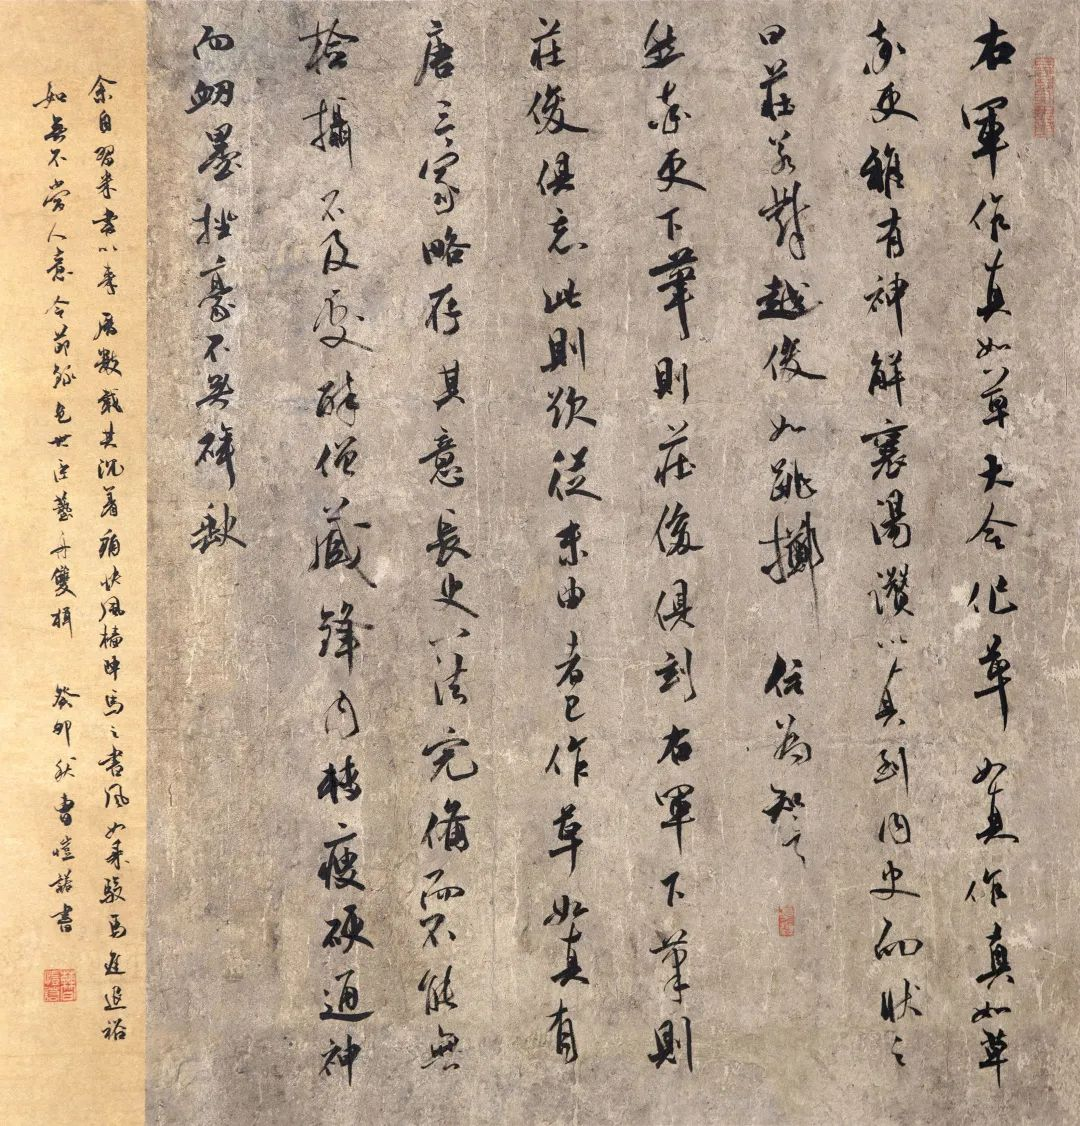 右軍作真如草大令作草如真作真如草
率更雅有神解襄陽讚以真到內史而狀之
曰莊若對越俊如跳擲信為知言
然率更下筆則莊俊俱到右軍下筆則
莊俊俱忘此則欲從末由者已作草如真有
唐三家略存其意長史以法完備而不能無
檢攝不及處醉僧藏鋒內轉瘦硬通神
而衂墨挫毫不無碎缺
余自習米書以來數載其沉着痛快風檣陣馬之書風如乘駿馬進退裕
如無不當人意今節錄包世臣藝舟雙楫癸卯秋曹愷諾書